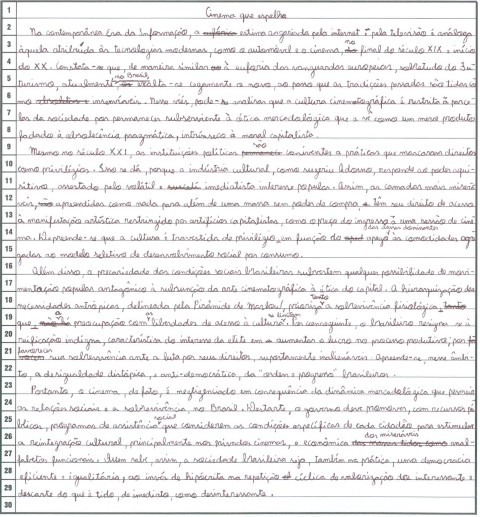 1 Cinema que espelha
2 Na contemporânea Era da Informação, a estima angariada pela internet e pela televisão é análoga
3 àquela atribuída às tecnologias modernas, como o automóvel e o cinema, no final do século XIX e início
4 do XX. Constata-se que, de maneira similar à euforia das vanguardas europeias, sobretudo do Fu-
5 turismo, atualmente, no Brasil, exalta-se cegamente o novo, ao passo que as tradições passadas são tidas co
6 mo irreversíveis. Nesse viés, pode-se analisar que a cultura cinematográfica é restrita à parce-
7 la da sociedade por permanecer subserviente à ótica mercadológica que a vê como um mero produto
8 fadado à obsolescência pragmática, intrínseca à moral capitalista.
9 Mesmo no século XXI, as instituições políticas são coniventes a práticas que mascaram direitos
10 como privilégios. Isso se dá, porque a indústria cultural, como sugeriu Adorno, responde ao poder aqui-
11 sitivo, assentado pelo volátil e imediatista interesse popular. Assim, as camadas mais miserá
12 veis, apreendidas como nada para além de uma massa sem poder de compra, têm seu direito de acesso
13 à manifestação artística restringido por artifícios capitalistas, como o preço do ingresso a uma sessão de cine
14 ma. Depreende-se que a cultura é travestida de privilégio em função do apego das classes dominantes às comodidades agre
15 gadas ao modelo seletivo de desenvolvimento social por consumo.
16 Além disso, a precariedade das condições sociais brasileiras subvertem qualquer possibilidade de movi-
17 mentação popular antagônica à subversão da arte cinematográfica à ótica do capital. A hierarquização das
18 necessidades antrópicas, delineada pela Pirâmide de Maslow, prioriza tanto a sobrevivência fisiológica
19 que a preocupação com as liberdades de acesso à cultura se limita. Por conseguinte, o brasileiro resigna-se à
20 reificação indigna, característica do interesse da elite em aumentar o lucro no processo produtivo, por
21 favorecer sua sobrevivência ante a luta por seus direitos, supostamente inalienáveis. Apreende-se, nesse âmbi-
22 to, a desigualdade distópica, e anti-democrática, da "ordem e progresso" brasileira.
23 Portanto, o cinema, de fato, é negligenciado em consequência da dinâmica mercadológica que permeia
24 as relações sociais e a sobrevivência, no Brasil. Destarte, o governo deve promover, com recursos pú
25 blicos, programas de assistência social que considerem as condições específicas de cada cidadão para estimular
26 a reintegração cultural, principalmente nos privados cinemas, e econômica dos miseráveis anal-
27 fabetos funcionais. Quem sabe, assim, a sociedade brasileira seja, também na prática, uma democracia
28 eficiente e igualitária, ao invés de hipócrita na repetição cíclica da valorização do interessante e
29 descarte do que é tido, de imediato, como desinteressante.
30